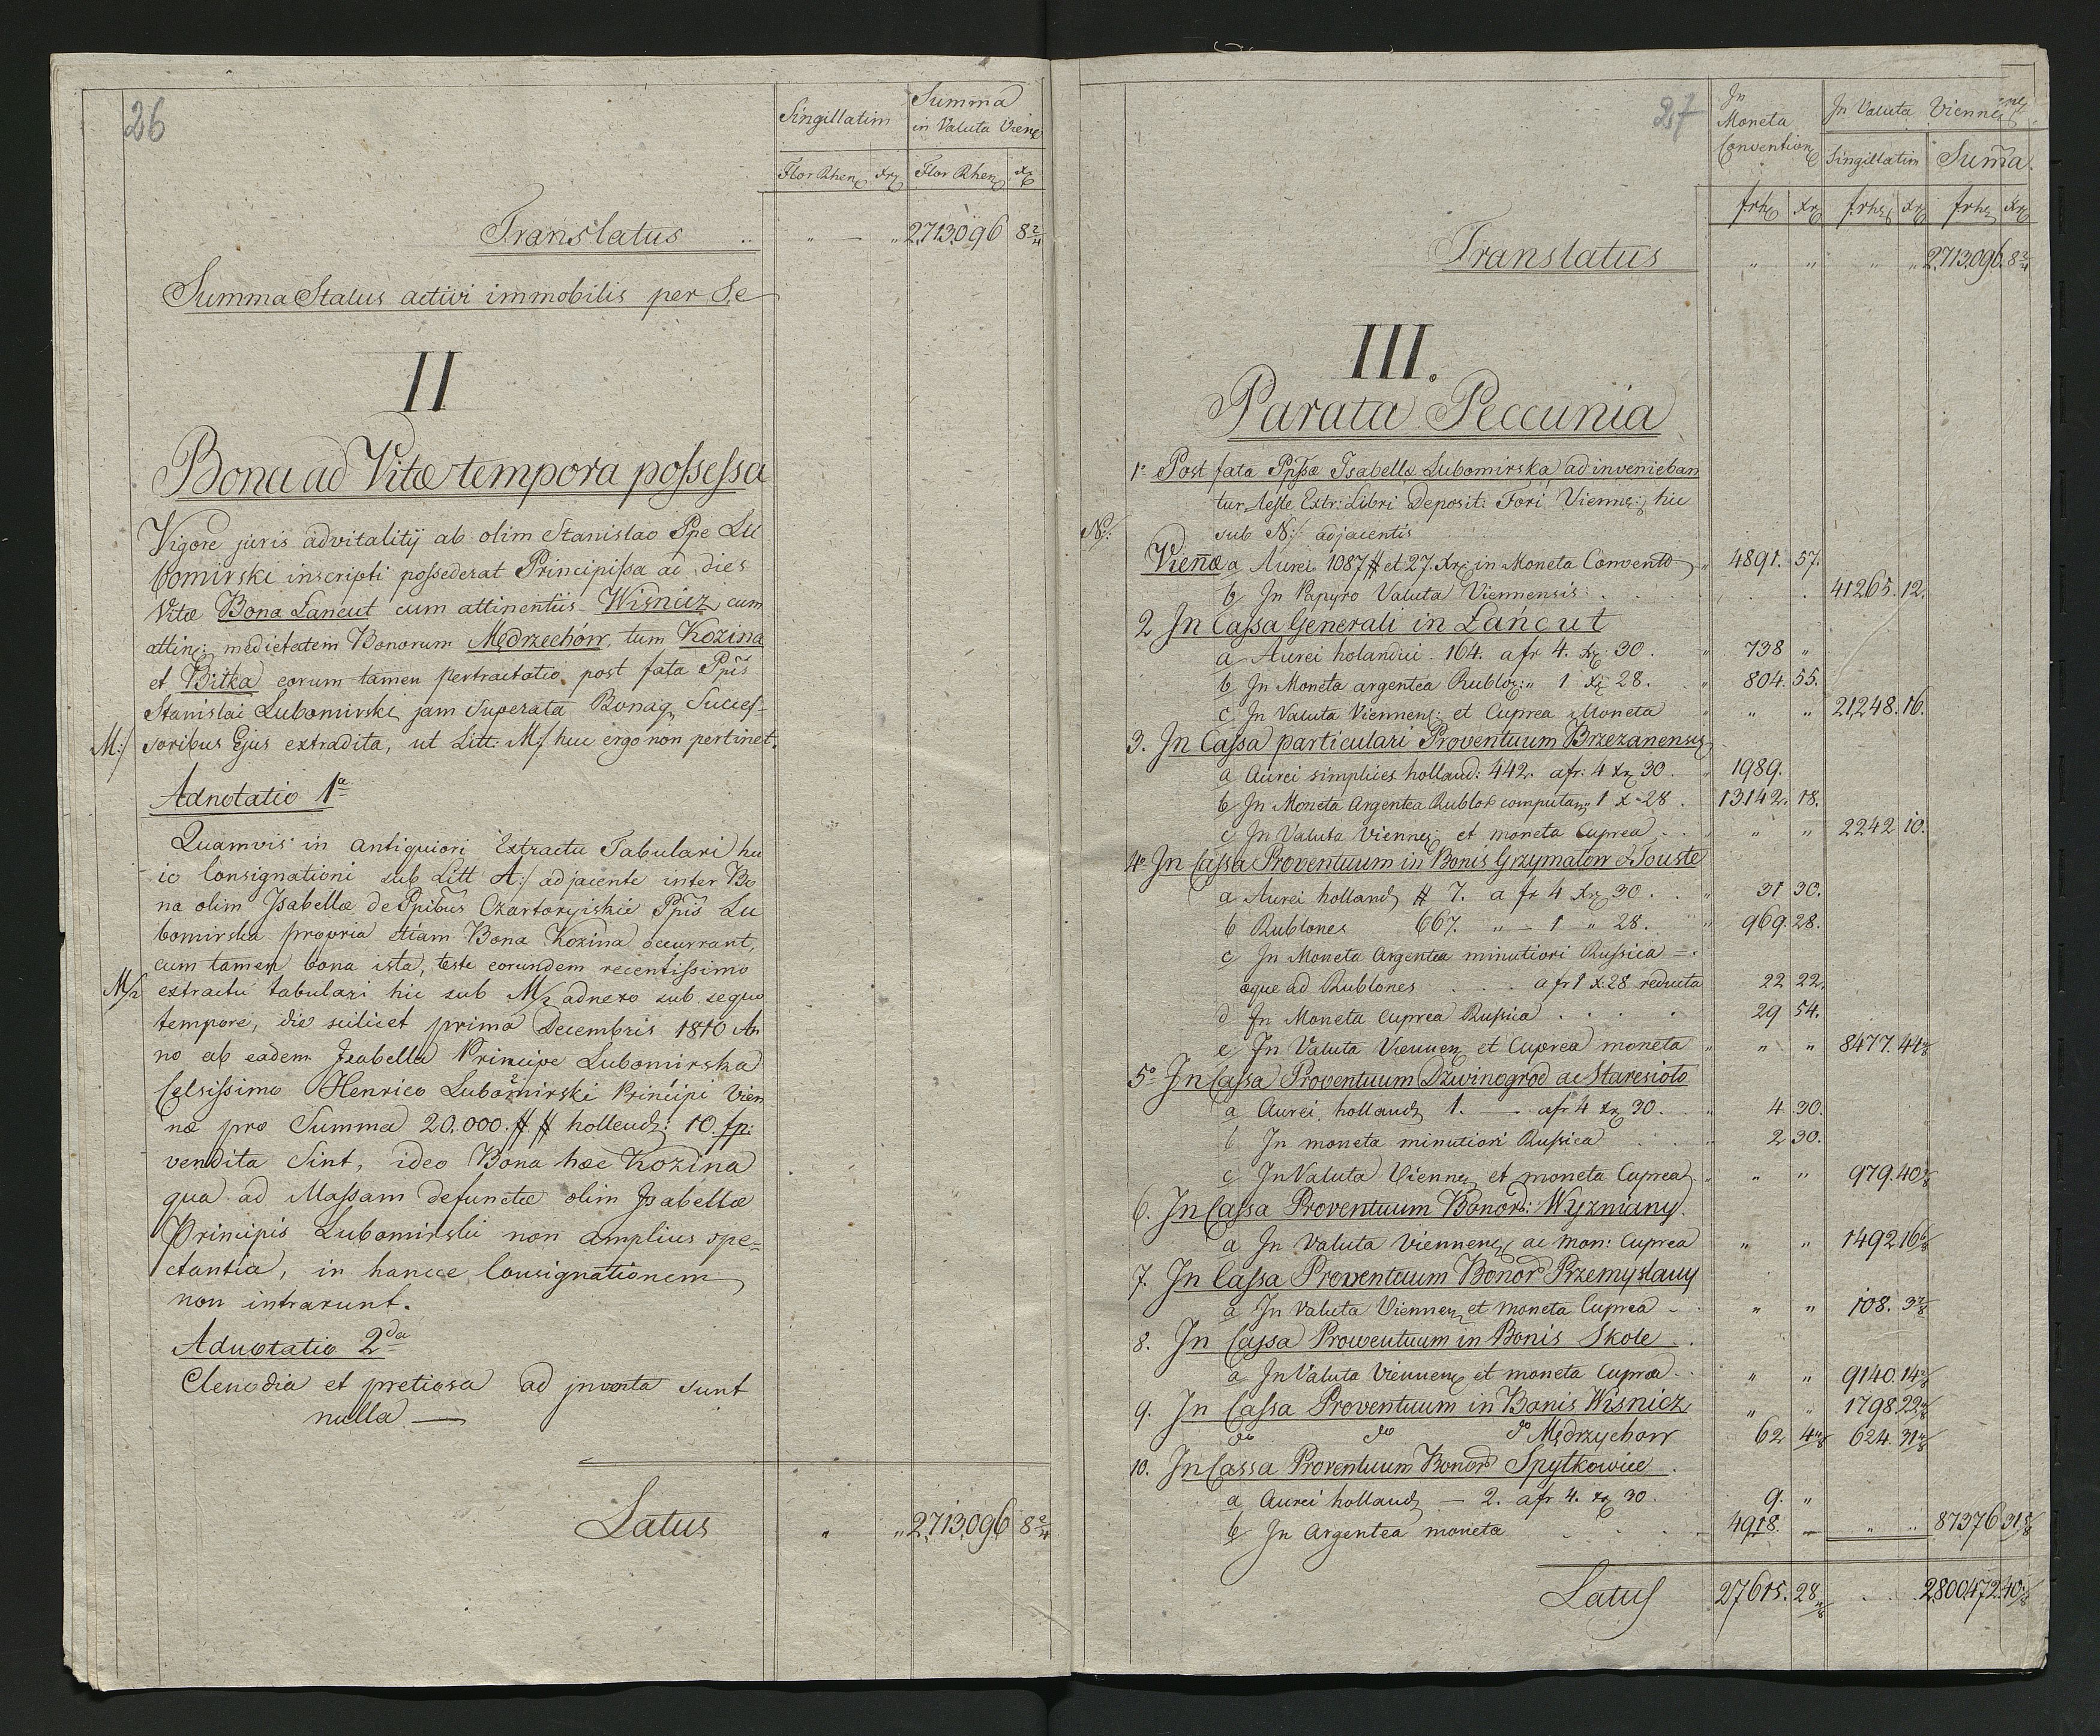 26
Singillatim
Summa
in Valuta Vien
Flor Rhen xr Flor Rhen xr
Translatus .. " — " 2,713,096 8 2/4
Summa Status activi immobilis per Se
II
Bona ad Vitæ tempora possessa
Vigore juris advitalitÿ ab olim Stanislao Ppe Lu
bomirski inscripti possederat Principissa ad dies
Vitæ Bona Lancut cum attinentiis Wisnicz cum
attin: medietatem Bonorum Mędrzechów, tum Kozina
et Bitka eorum tamen pertractatio post fata Ppis
Stanislai Lubomirski jam Superata Bonaq Succes-
M:/ soribus Ejus extradita, ut Litt: M:/ huc ergo non pertinet.
Adnotatio 1a
Quamvis in antiquiori Extractu Tabulari hu
ic Consignationi sub Litt A:/ adjacente inter Bo
na olim Isabellæ de Ppibus Czartoryiskie Ppis Lu
bomirska propria etiam Bona Kozina occurrant,
cum tamen bona ista, teste eorundem recentissimo
M/2 extractu tabulari hic sub M/2 adnexo sub sequo
tempore, die scilicet prima Decembris 1810 An
no ab eadem Isabella Principe Lubomirska
Celsissimo Henrico Lubomirski Principi Vien
næ pro Summa 20.000 # # hollend: 10 fp:
vendita Sint, ideo Bona hæc Kozina
qua ad Massam defunctæ olim Isabellæ
Principis Lubomirski non amplius spe=
ctantia, in hancce Consignationem
non intrarunt.
Adnotatio 2da
Clenodia et pretiosa ad inventa sunt
nulla —
Latus " " 2,713,096 8 2/4
27
In Moneta Convention
In Valuta Viennen
Singillatim Suma
frh xr frh xr frh xr
Translatus " " " " 2,713,096. 8 2/4
III.
Parata Peccunia
1o Post fata Ppssæ Isabellæ Lubomirska adinvenieban
tur teste Extr: Libri Deposit: Fori Vienne: hic
N:/ sub N:/ adjacentis
Vienæ a Aurei 1087 # et 27. Xr in Moneta Convento " 4891. 57.
b In Papyro Valuta Viennensis . . . 41265. 12.
2 In Cassa Generali in Łańcut
a Aurei holandici 164. a fr 4. Xr 30. " 738 "
b In Moneta argentea Rublor: " 1 Xr 28. " 804. 55.
c In Valuta Viennens: et Cuprea Moneta " " " 21,248. 16.
3. In Cassa particulari Proventuum Brzezanensis
a Aurei simplices holland: 442. a fr: 4 Xr 30. " 1989.
b In Moneta Argentea Rublos computan 1 X 28. 13142. 18.
c In Valuta Vienne: et moneta Cuprea . . " " " 2242 10.
4o In Cassa Proventuum in Bonis Grzymałow & Touste
a Aurei holland # 7. a fr 4 Xr 30. . " 31 30.
b Rublones 667. " — 1 " 28. " 969. 28.
c In Moneta Argentea minutiori Russica =
eque ad Rublones . . . a fr 1 X 28 reducta 22 22.
d In Moneta Cuprea Russica . . . . 29 54.
e In Valuta Viennen et Cuprea moneta " " " 8477. 44
5o In Cassa Proventuum Dzwinogrod ac Staresioło
a Aurei holland 1. — a fr 4 Xr 30. . " 4. 30.
b In moneta minutiori Russica . . " 2 30.
c In Valuta Vienne et moneta Cuprea . " " " 979. 40
6. In Cassa Proventuum Bonor: Wyzniany.
a In Valuta Viennen ac Mon: Cuprea " " 1492 16 6/8
7. In Cassa Proventuum Bonor Przemyslany
a In Valuta Viennen et moneta Cuprea - " " 108. 3
8. In Cassa Prowentuum in Bonis Skole .
a In Valuta Viennen et moneta Cuprea . . " " 9140. 14
9. In Cassa Proventuum in Bonis Wisnicz " " 1798. 22
do do do Mędrzychow 62 4 624. 31
10. In Cassa Proventuum Bonor Spytkowice .
a Aurei holland — 2. a fr 4. Xr 30. 9. "
b In Argentea moneta . . . . 4918. — " " 87376 31
Latus 27615. 28 . . 2,800,472. 40